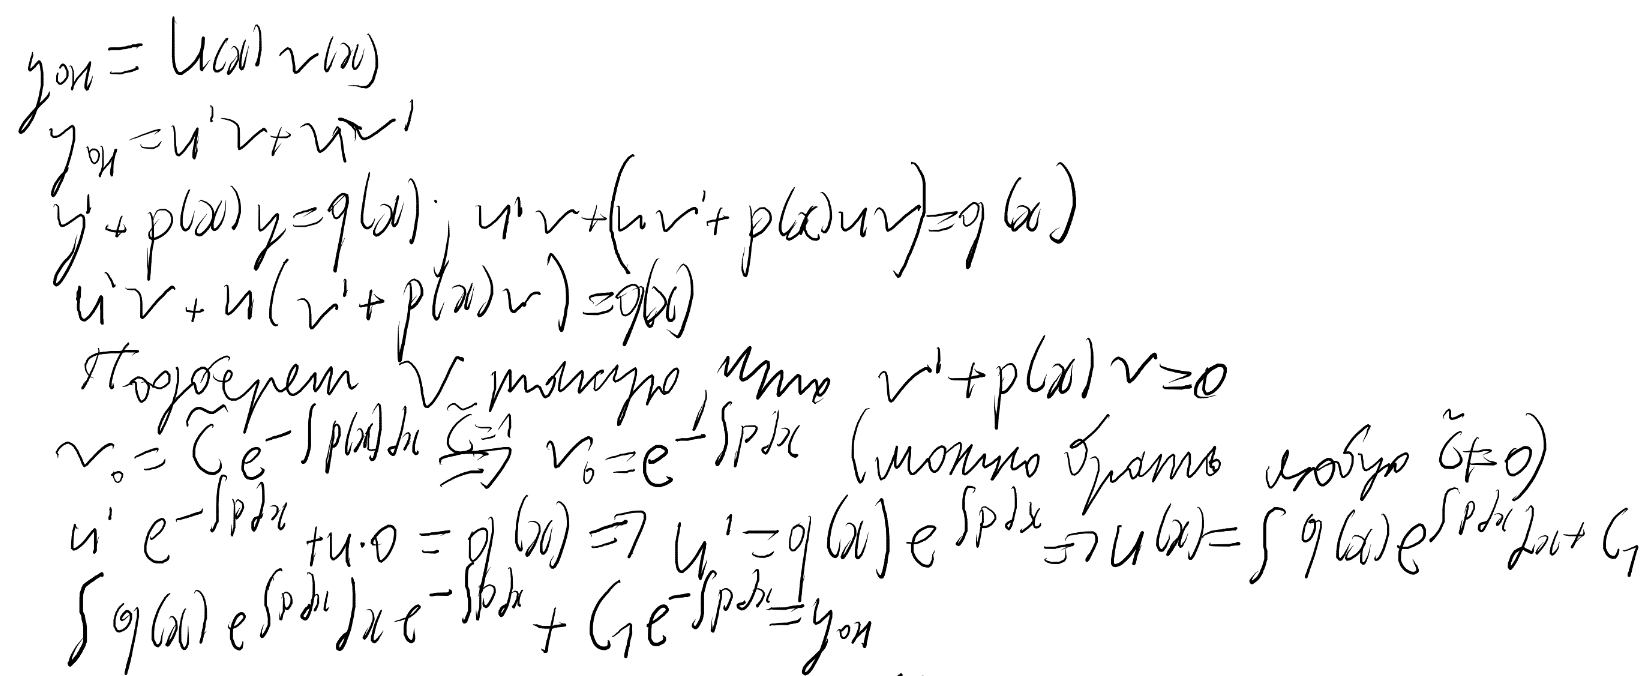 y_он = u(x) v(x)
y_он = u'v + uv'
y' + p(x)y = q(x); u'v + (uv' + p(x)uv) = q(x)
u'v + u(v' + p(x)v) = q(x)
Подберем v такую, что v' + p(x)v = 0
v₀ = C̃ e^{-∫p(x)dx} ⇒ (C̃=1) v₀ = e^{-∫pdx} (можно брать любую C̃≠0)
u' e^{-∫pdx} + u·0 = q(x) ⇒ u' = q(x) e^{∫pdx} ⇒ u(x) = ∫q(x)e^{∫pdx}dx + C₁
∫q(x) e^{∫pdx}dx e^{-∫pdx} + C₁e^{-∫pdx} = y_он